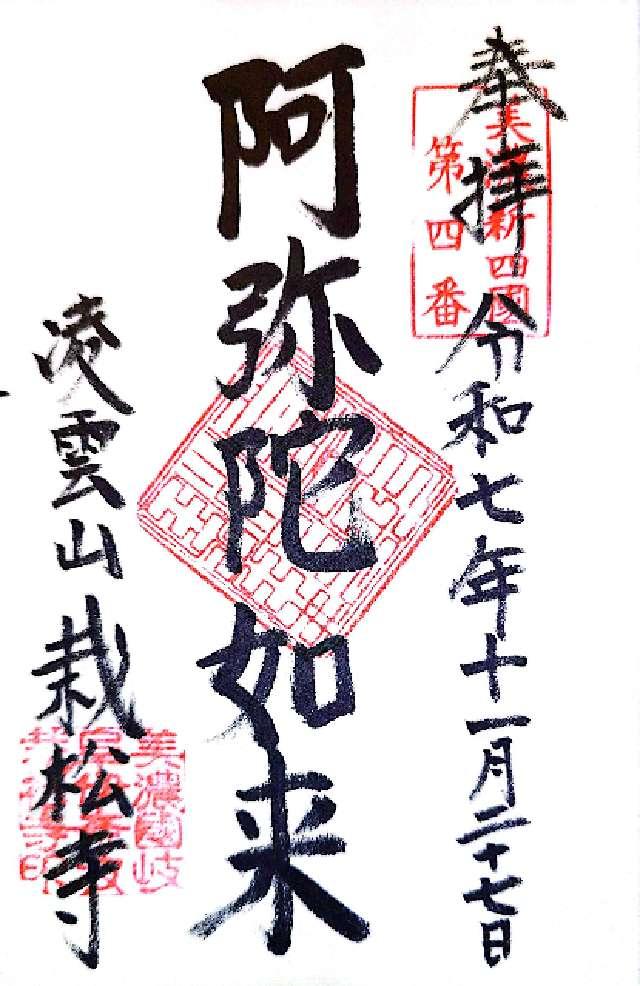 奉拝 令和七年十一月二十七日
美濃新四國
第四番
阿弥陀如来
凌雲山 栽松寺
美濃國岐